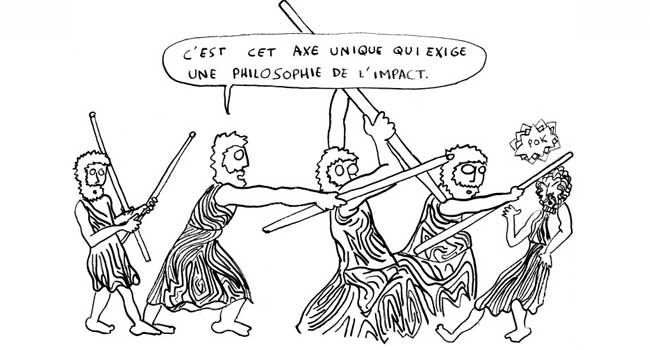 C'EST CET AXE UNIQUE QUI EXIGE
UNE PHILOSOPHIE DE L'IMPACT.
POK